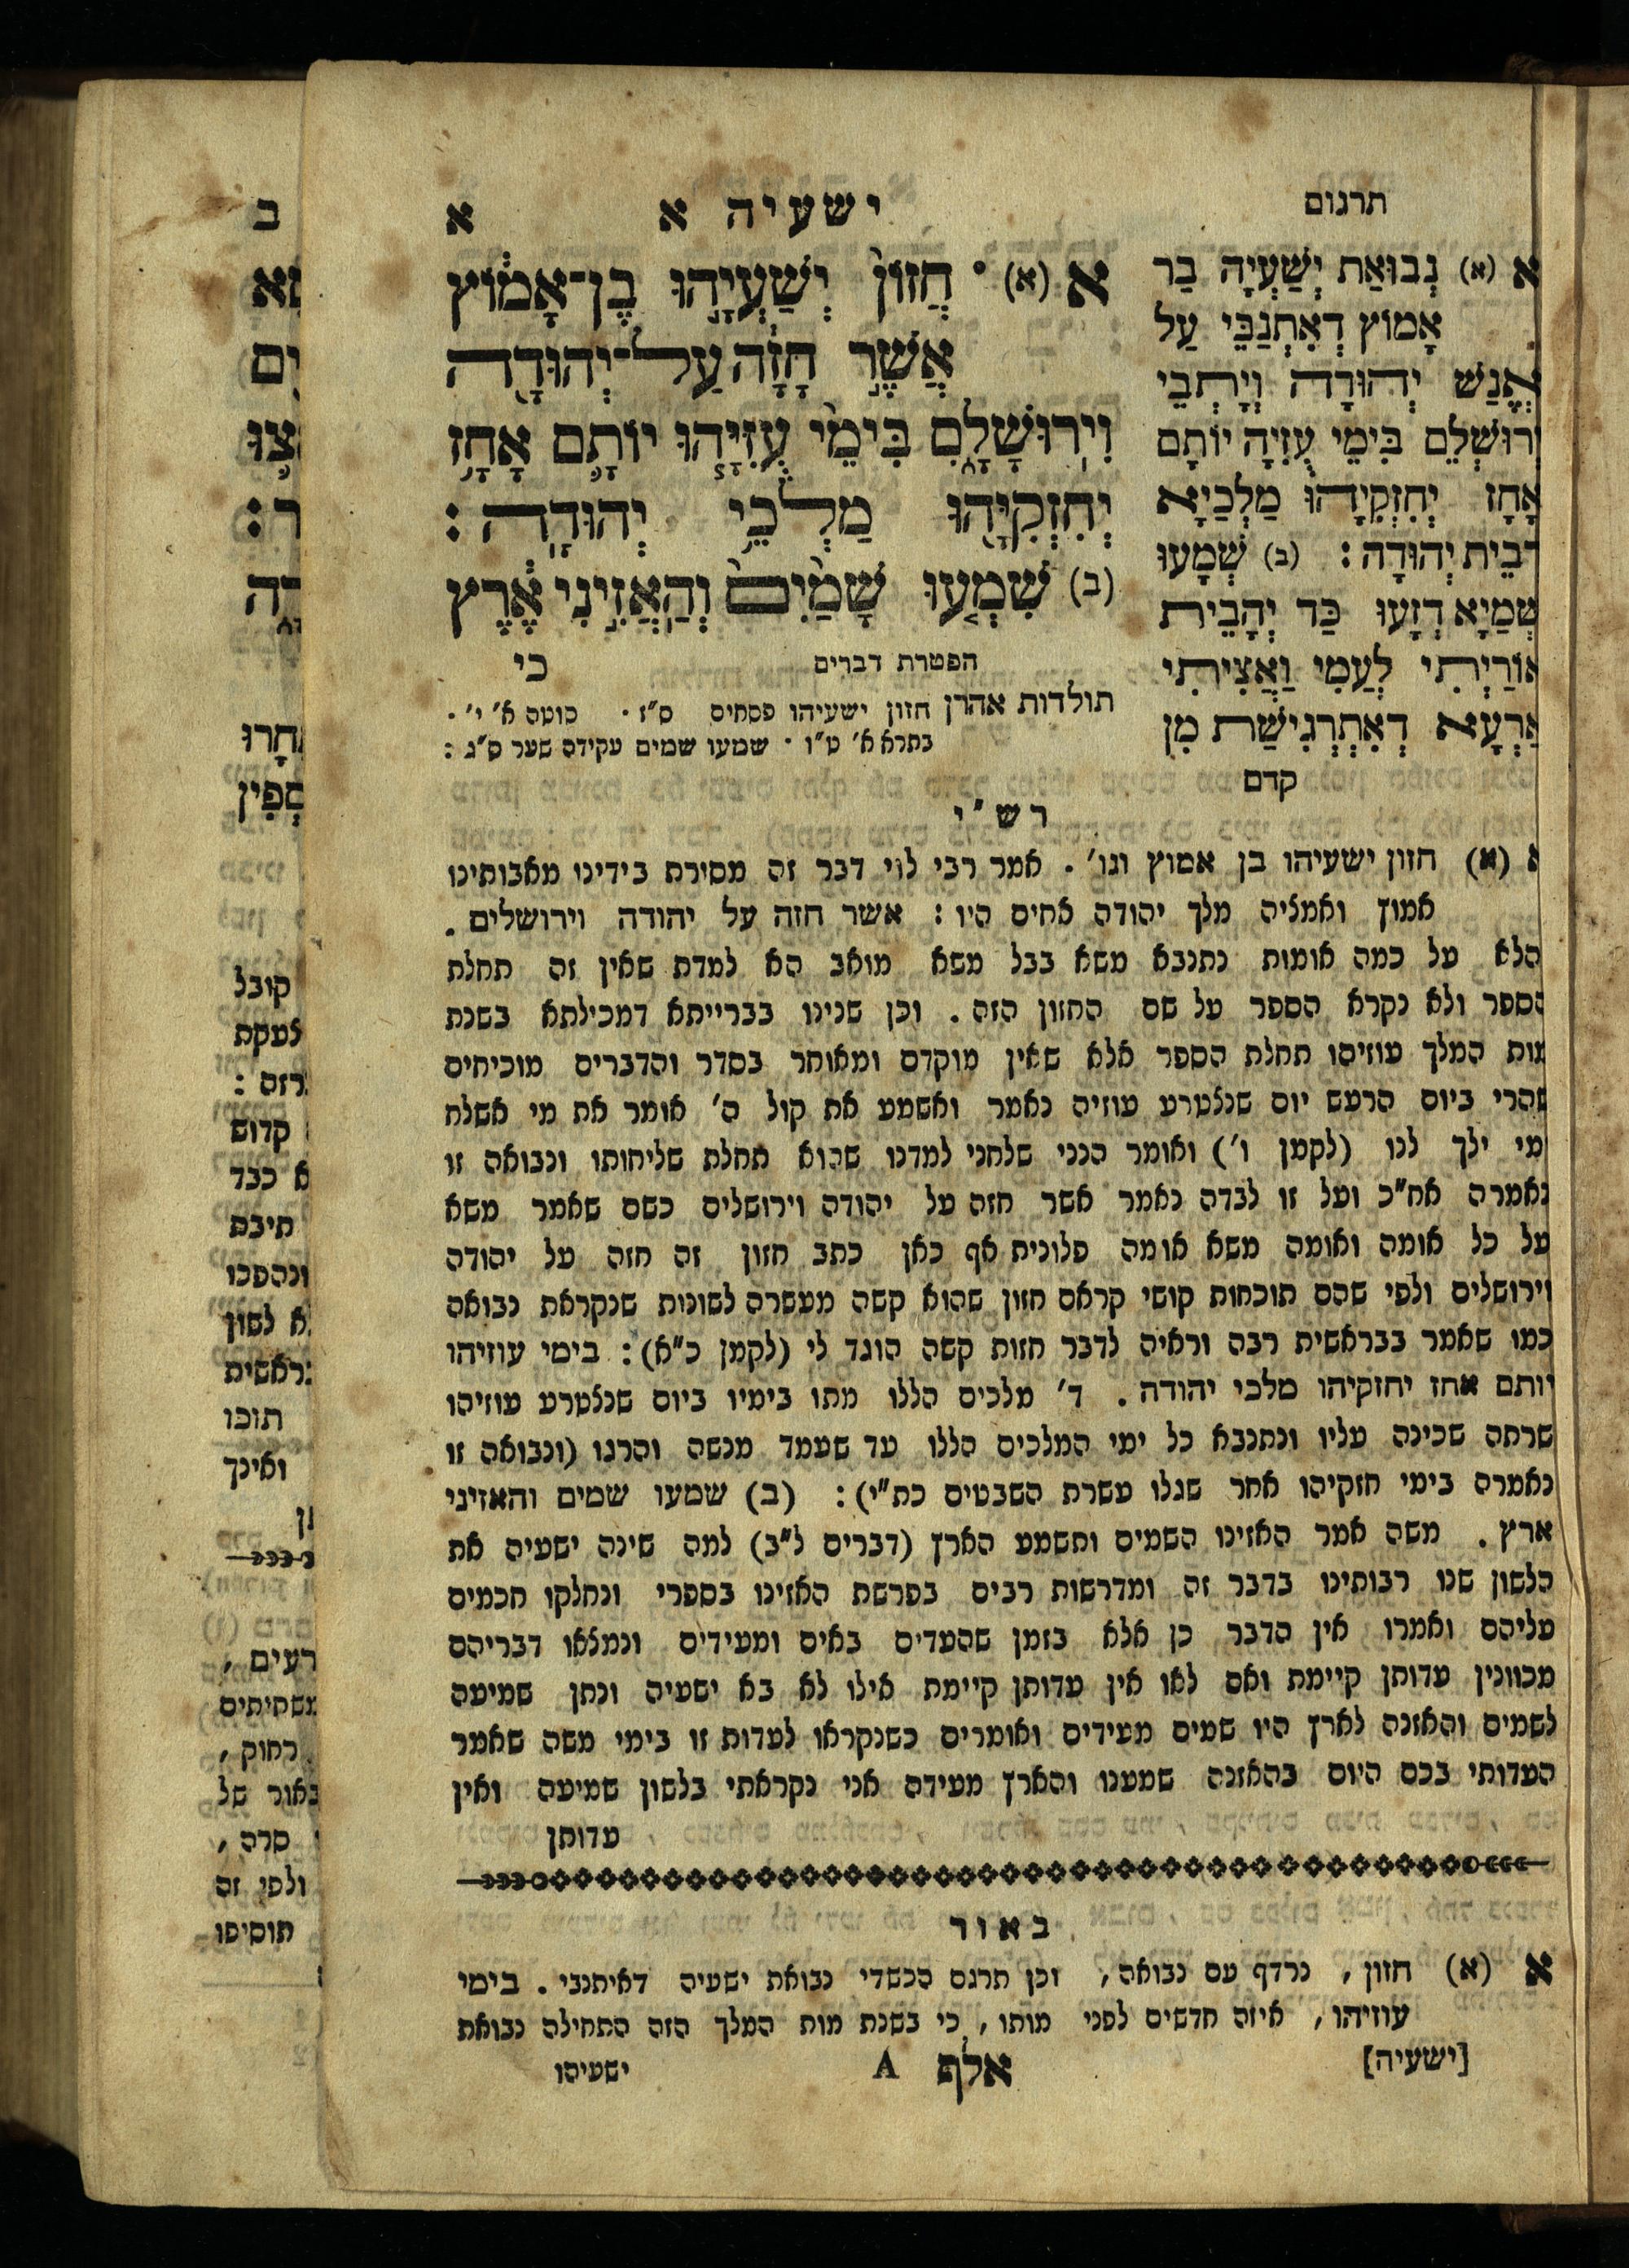 תרגום
ישעיה א
א
א (א) נְבוּאַת יְשַׁעְיָה בַר
אָמוֹץ דְאִתְנַבֵּי עַל
אֱנַשׁ יְהוּדָה וְיָתְבֵי
יְרוּשְׁלֵם בִּימֵי עֻזִיָה יוֹתָם
אָחָז יְחִזְקִיָהוּ מַלְכַיָא
דְבֵית יְהוּדָה : (ב) שְׁמָעוּ
שְׁמַיָא דְזָעוּ כַּד יְהָבֵית
אוֹרַיְתִי לְעַמִי וַאֲצִיתִי
אַרְעָא דְאִתְרְגִישַׁת מִן
קדם
א (א) ° חֲזוֹן יְשַׁעְיָהוּ בֶן־אָמוֹץ
אֲשֶׁר חָזָה עַל־יְהוּדָה
וִירוּשָׁלָם בִּימֵי עֻזִּיָּהוּ יוֹתָם אָחָז
יְחִזְקִיָּהוּ מַלְכֵי יְהוּדָה :
(ב) שִׁמְעוּ שָׁמַיִם וְהַאֲזִינִי אֶרֶץ
הפטרת דברים כי
תולדות אהרן חזון ישעיהו פסחים ס"ז · סוטה א' י' ·
בתרא א' ט"ו · שמעו שמים עקידה שער ס"ג :
רש"י
א (א) חזון ישעיהו בן אמוץ וגו' . אמר רבי לוי דבר זה מסורת בידינו מאבותינו
אמוץ ואמציה מלך יהודה אחים היו : אשר חזה על יהודה וירושלים .
והלא על כמה אומות נתנבא משא בבל משא מואב הא למדת שאין זה תחלת
הספר ולא נקרא הספר על שם החזון הזה . וכן שנינו בברייתא דמכילתא בשנת
מות המלך עוזיהו תחלת הספר אלא שאין מוקדם ומאוחר בסדר והדברים מוכיחים
שהרי ביום הרעש יום שנצטרע עוזיה נאמר ואשמע את קול ה' אומר את מי אשלח
ומי ילך לנו (לקמן ו') ואומר הנני שלחני למדנו שהוא תחלת שליחותו ונבואה זו
נאמרה אח"כ ועל זו לבדה נאמר אשר חזה על יהודה וירושלים כשם שאמר משא
על כל אומה ואומה משא אומה פלונית אף כאן כתב חזון זה חזה על יהודה
וירושלים ולפי שהם תוכחות קושי קראם חזון שהוא קשה מעשרה לשונות שנקראת נבואה
כמו שאמר בבראשית רבה וראיה לדבר חזות קשה הוגד לי (לקמן כ"א) : בימי עוזיהו
יותם אחז יחזקיהו מלכי יהודה . ד' מלכים הללו מתו בימיו ביום שנצטרע עוזיהו
שרתה שכינה עליו ונתנבא כל ימי המלכים הללו עד שעמד מנשה והרגו (ונבואה זו
נאמרה בימי חזקיהו אחר שגלו עשרת השבטים כת"י) : (ב) שמעו שמים והאזיני
ארץ . משה אמר האזינו השמים ותשמע הארץ (דברים ל"ב) למה שינה ישעיה את
הלשון שנו רבותינו בדבר זה ומדרשות רבים בפרשת האזינו בספרי ונחלקו חכמים
עליהם ואמרו אין הדבר כן אלא בזמן שהעדים באים ומעידים ונמצאו דבריהם
מכוונין עדותן קיימת ואם לאו אין עדותן קיימת אילו לא בא ישעיה ונתן שמיעה
לשמים והאזנה לארץ היו שמים מעידים ואומרים כשנקראו לעדות זו בימי משה שאמר
העדותי בכם היום בהאזנה שמענו והארץ מעידה אני נקראתי בלשון שמיעה ואין
עדותן
באור
א (א) חזון , נרדף עם נבואה , וכן תרגם הכשדי נבואת ישעיה דאיתנבי . בימי
עוזיהו , איזה חדשים לפני מותו , כי בשנת מות המלך הזה התחילה נבואת
[ישעיה] אלף A ישעיהו
ב
קובל
קדוש
כבד
תיבת
ונהפכו
לשון
תוכו
ואינך
רחוק ,
סרה ,
ולפי זה
תוסיפו